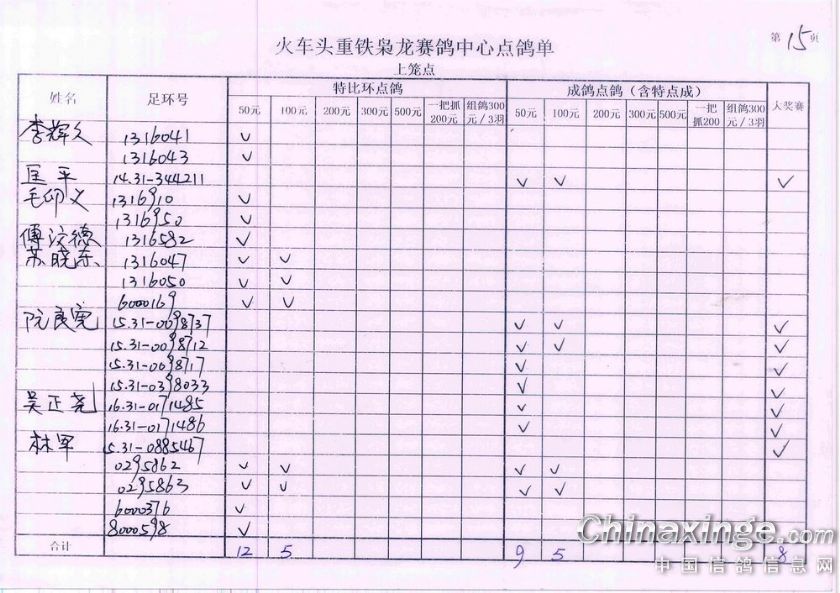 第15页
火车头重铁枭龙赛鸽中心点鸽单
上笼点
姓名 足环号 特比环点鸽 成鸽点鸽（含特点成） 大奖赛
50元 100元 200元 300元 500元 一把抓200元 组鸽300元/3羽 50元 100元 200元 300元 500元 一把抓200 组鸽300元/3羽
李辉久 1316041 ✓
1316043 ✓
匡平 14.31-344211 ✓ ✓ ✓
毛仰义 1316910 ✓
1316950 ✓
傅汶德 1316582 ✓
苏晓东 1316047 ✓ ✓
1316050 ✓ ✓
6000169 ✓ ✓
阮良宽 15.31-0098737 ✓ ✓ ✓
15.31-0098712 ✓ ✓ ✓
15.31-0098717 ✓ ✓
15.31-0398033 ✓ ✓
吴正尧 16.31-0171485 ✓ ✓
16.31-0171486 ✓ ✓
林军 15.31-0885467 ✓
0295862 ✓ ✓ ✓ ✓
0295863 ✓ ✓ ✓ ✓
6000376 ✓
8000598 ✓
合计 12 5 9 5 8
Chinaxinge.com
中国信鸽信息网